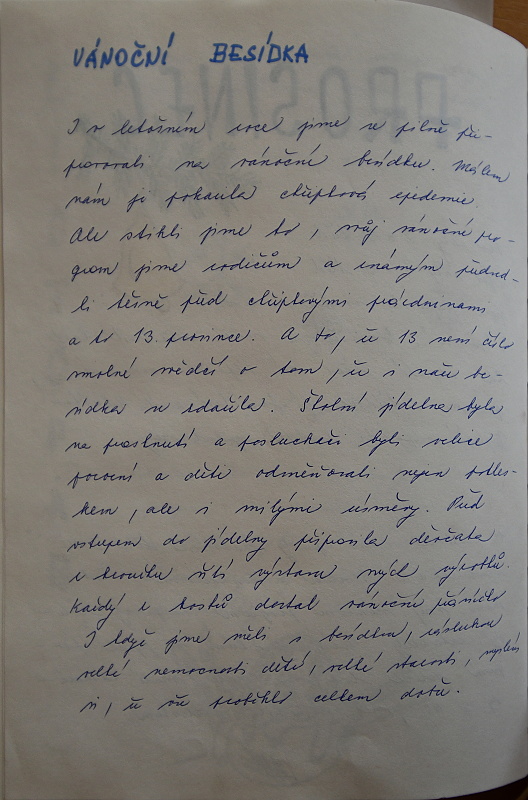 VÁNOČNÍ BESÍDKA
I v letošním roce jsme se pilně při-
pravovali na vánoční besídku. Málem
nám ji pokazila chřipková epidemie.
Ale stihli jsme to, svůj vánoční pro-
gram jsme rodičům a známým předved-
li těsně před chřipkovými prázdninami
a to 13. prosince. A to, že 13 není číslo
smolné svědčí o tom, že i naše be-
sídka se zdařila. Školní jídelna byla
na prasknutí a posluchači byli velice
pozorní a děti odměňovali nejen potles-
kem, ale i milými úsměvy. Před
vstupem do jídelny připravila děvčata
z kroužku šití výstavu svých výrobků.
Každý z hostů dostal vánoční přáníčko
I když jsme měli s besídkou, následkem
velké nemocnosti dětí, velké starosti, myslím
si, že vše proběhlo celkem dobře.